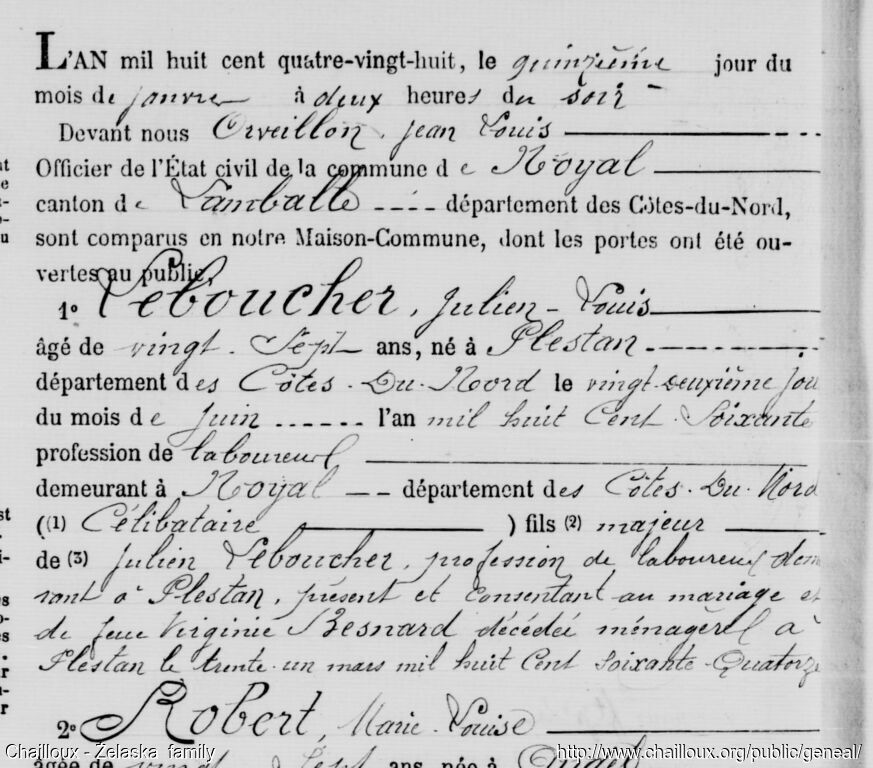 L'AN mil huit cent quatre-vingt-huit, le quinzième jour du
mois de janvier à deux heures du soir
Devant nous Orveillon, Jean Louis
Officier de l'État civil de la commune de Noyal
canton de Lamballe département des Côtes-du-Nord,
sont comparus en notre Maison-Commune, dont les portes ont été ou-
vertes au public,
1º Leboucher, Julien-Louis
âgé de vingt-sept ans, né à Plestan
département des Côtes-Du-Nord le vingt-deuxième jou
du mois de juin l'an mil huit Cent Soixante
profession de laboureur
demeurant à Noyal département des Côtes-Du-Nord
((1) Célibataire ) fils (2) majeur
de (3) Julien Leboucher, profession de laboureur dem
rant à Plestan, présent et Consentant au mariage et
de feue Virginie Besnard décédée ménagère à
Plestan le trente-un mars mil huit Cent Soixante-Quatorze
2º Robert, Marie-Louise
âgée de vingt Sept ans, née à
Chailloux - Żelaska family
http://www.chailloux.org/public/geneal/